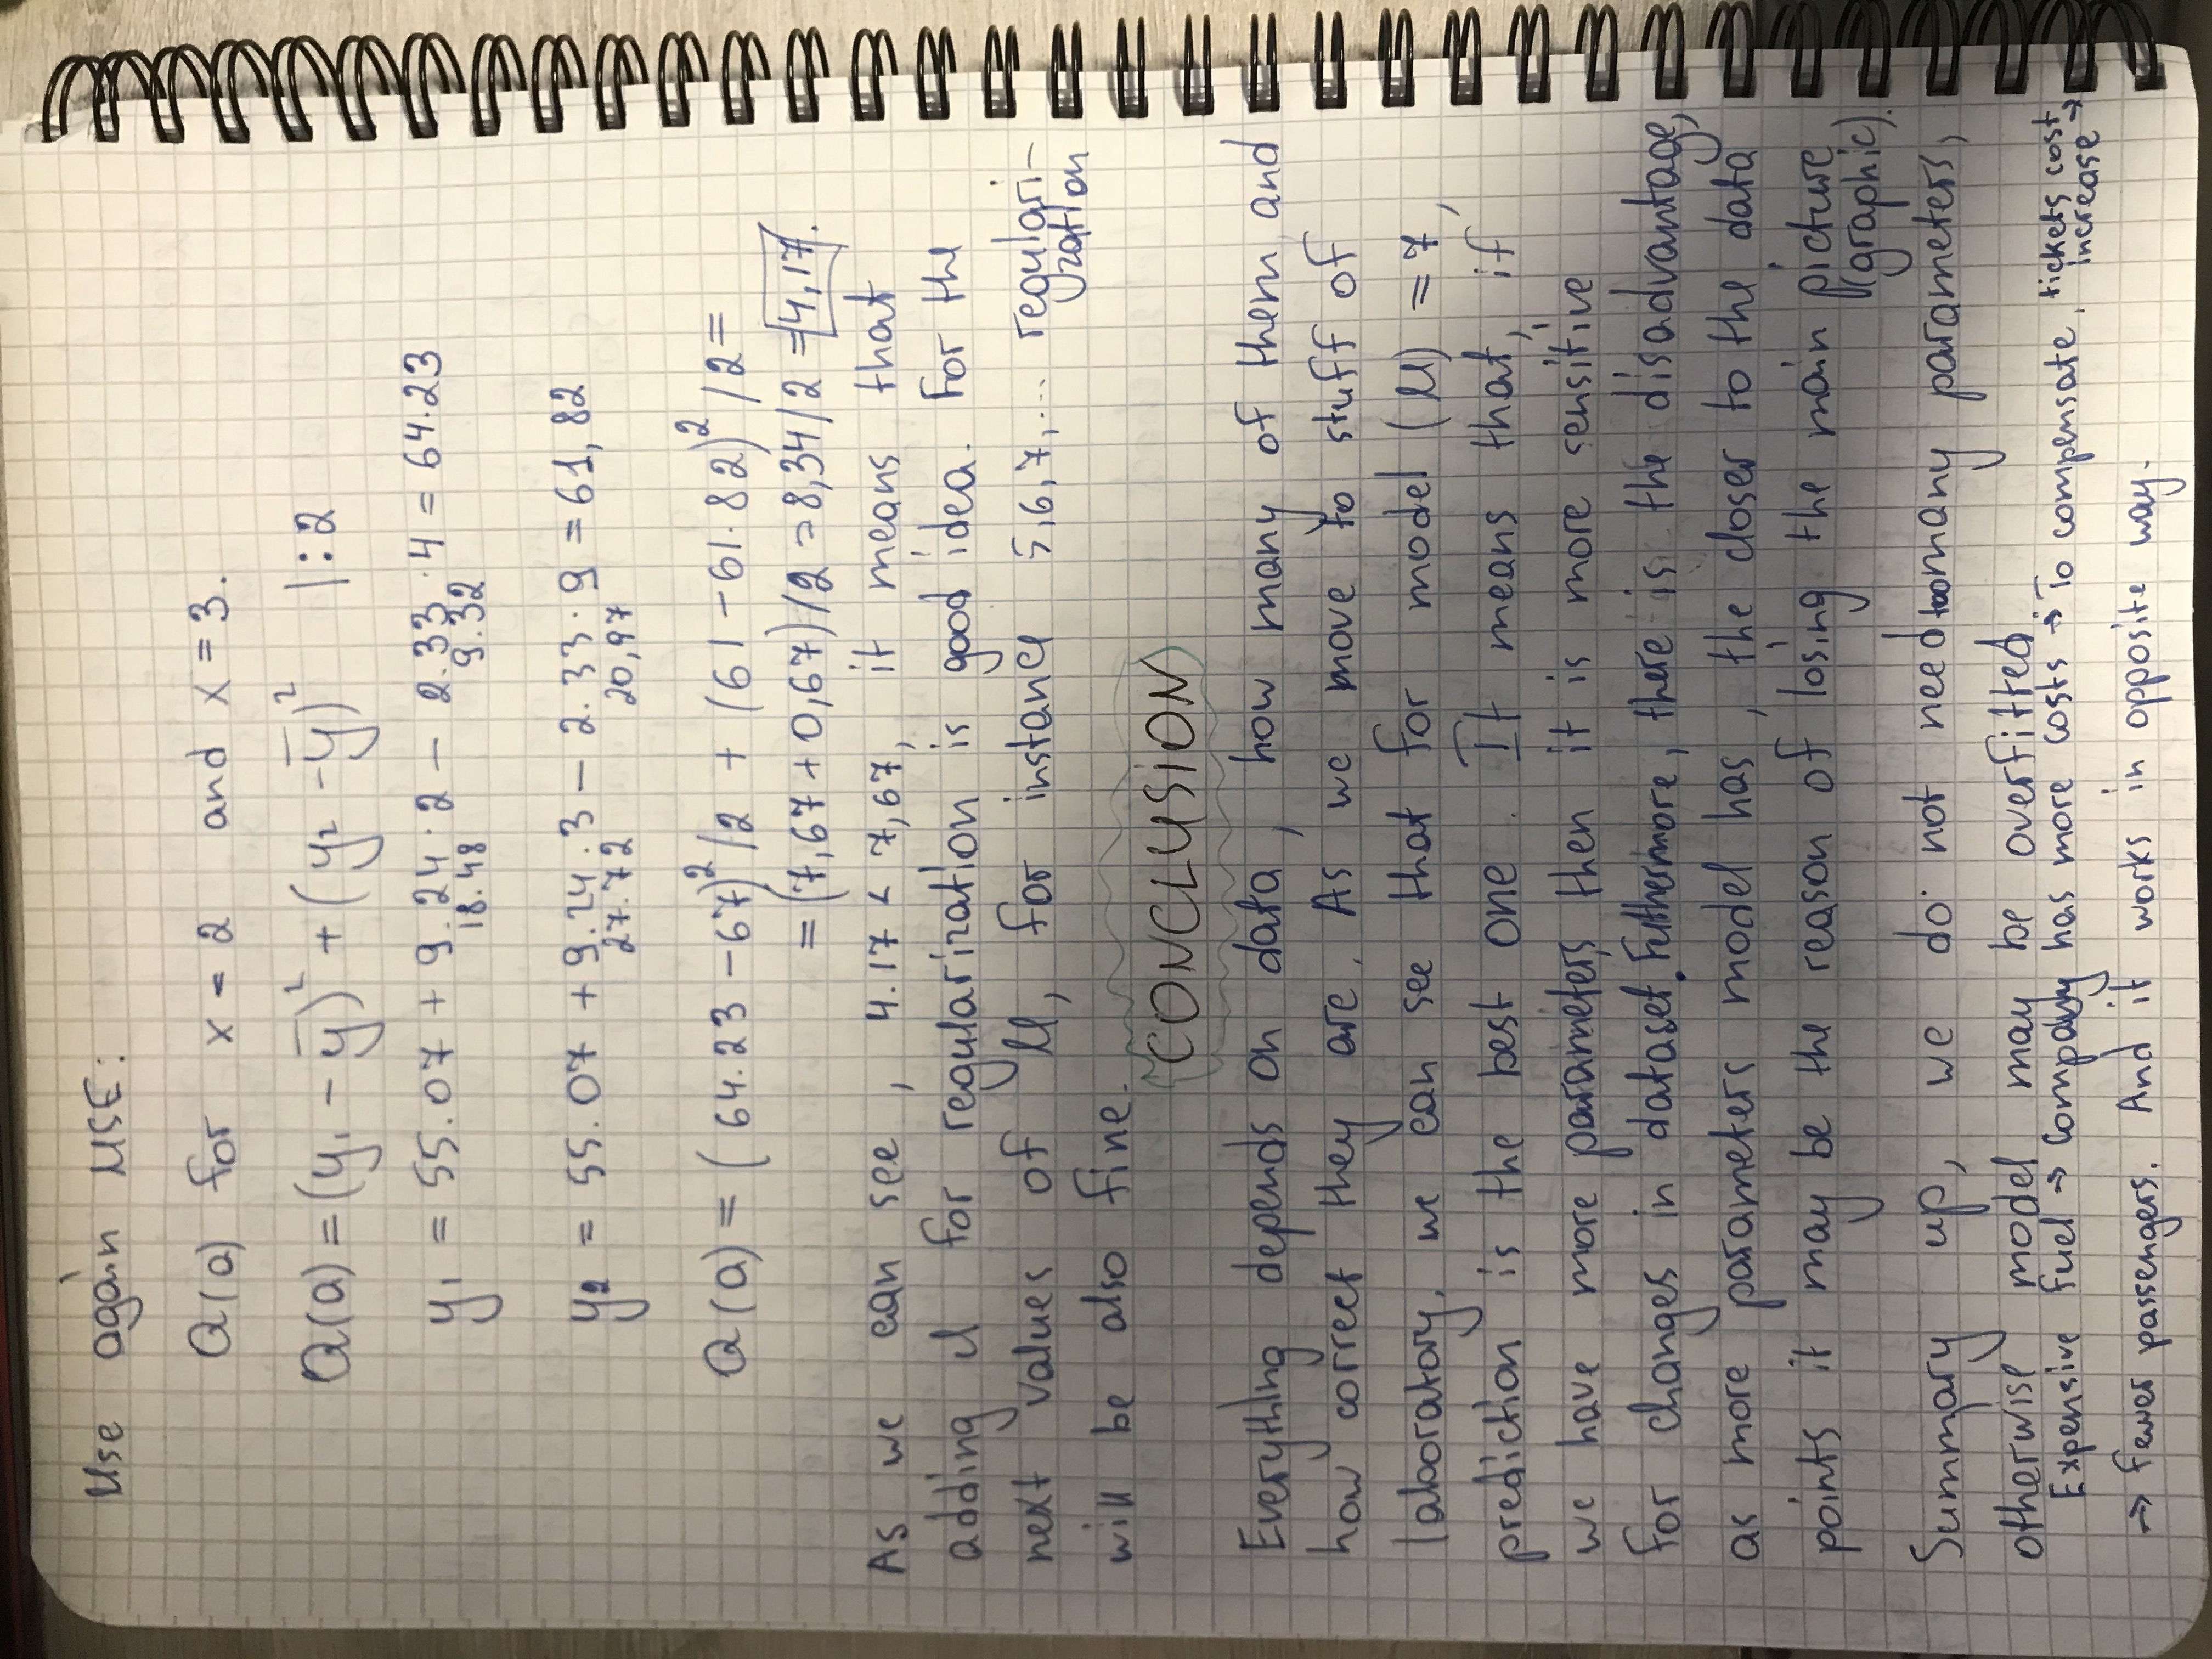 Use again MSE:
Q(a) for x = 2 and x = 3.
Q(a) = (y₁ - y̅)² + (y₂ - y̅)² |:2
y₁ = 55.07 + 9.24 · 2 - 2.33 · 4 = 64.23
18.48 9.32
y₂ = 55.07 + 9.24 · 3 - 2.33 · 9 = 61,82
27.72 20,97
Q(a) = (64.23 - 67)² /2 + (61 - 61.82)² /2 =
= (7,67 + 0,67) /2 = 8,34/2 = 4,17.
As we can see, 4.17 < 7,67, it means that
adding μ for regularization is good idea. For the
next values of μ, for instance 5,6,7,... regulari-
zation
will be also fine.
CONCLUSION
Everything depends on data, how many of them and
how correct they are. As we move to stuff of
laboratory, we can see that for model (μ) = 7,
prediction is the best one. It means that, if
we have more parameters, then it is more sensitive
for changes in dataset. Futhermore, there is the disadvantage,
as more parameters model has, the closer to the data
points it may be the reason of losing the main picture
(graphic).
Summary up, we do not need too many parameters,
otherwise model may be overfitted.
Expensive fuel → Company has more costs → To compensate, tickets cost
increase →
→ fewer passengers. And it works in opposite way.